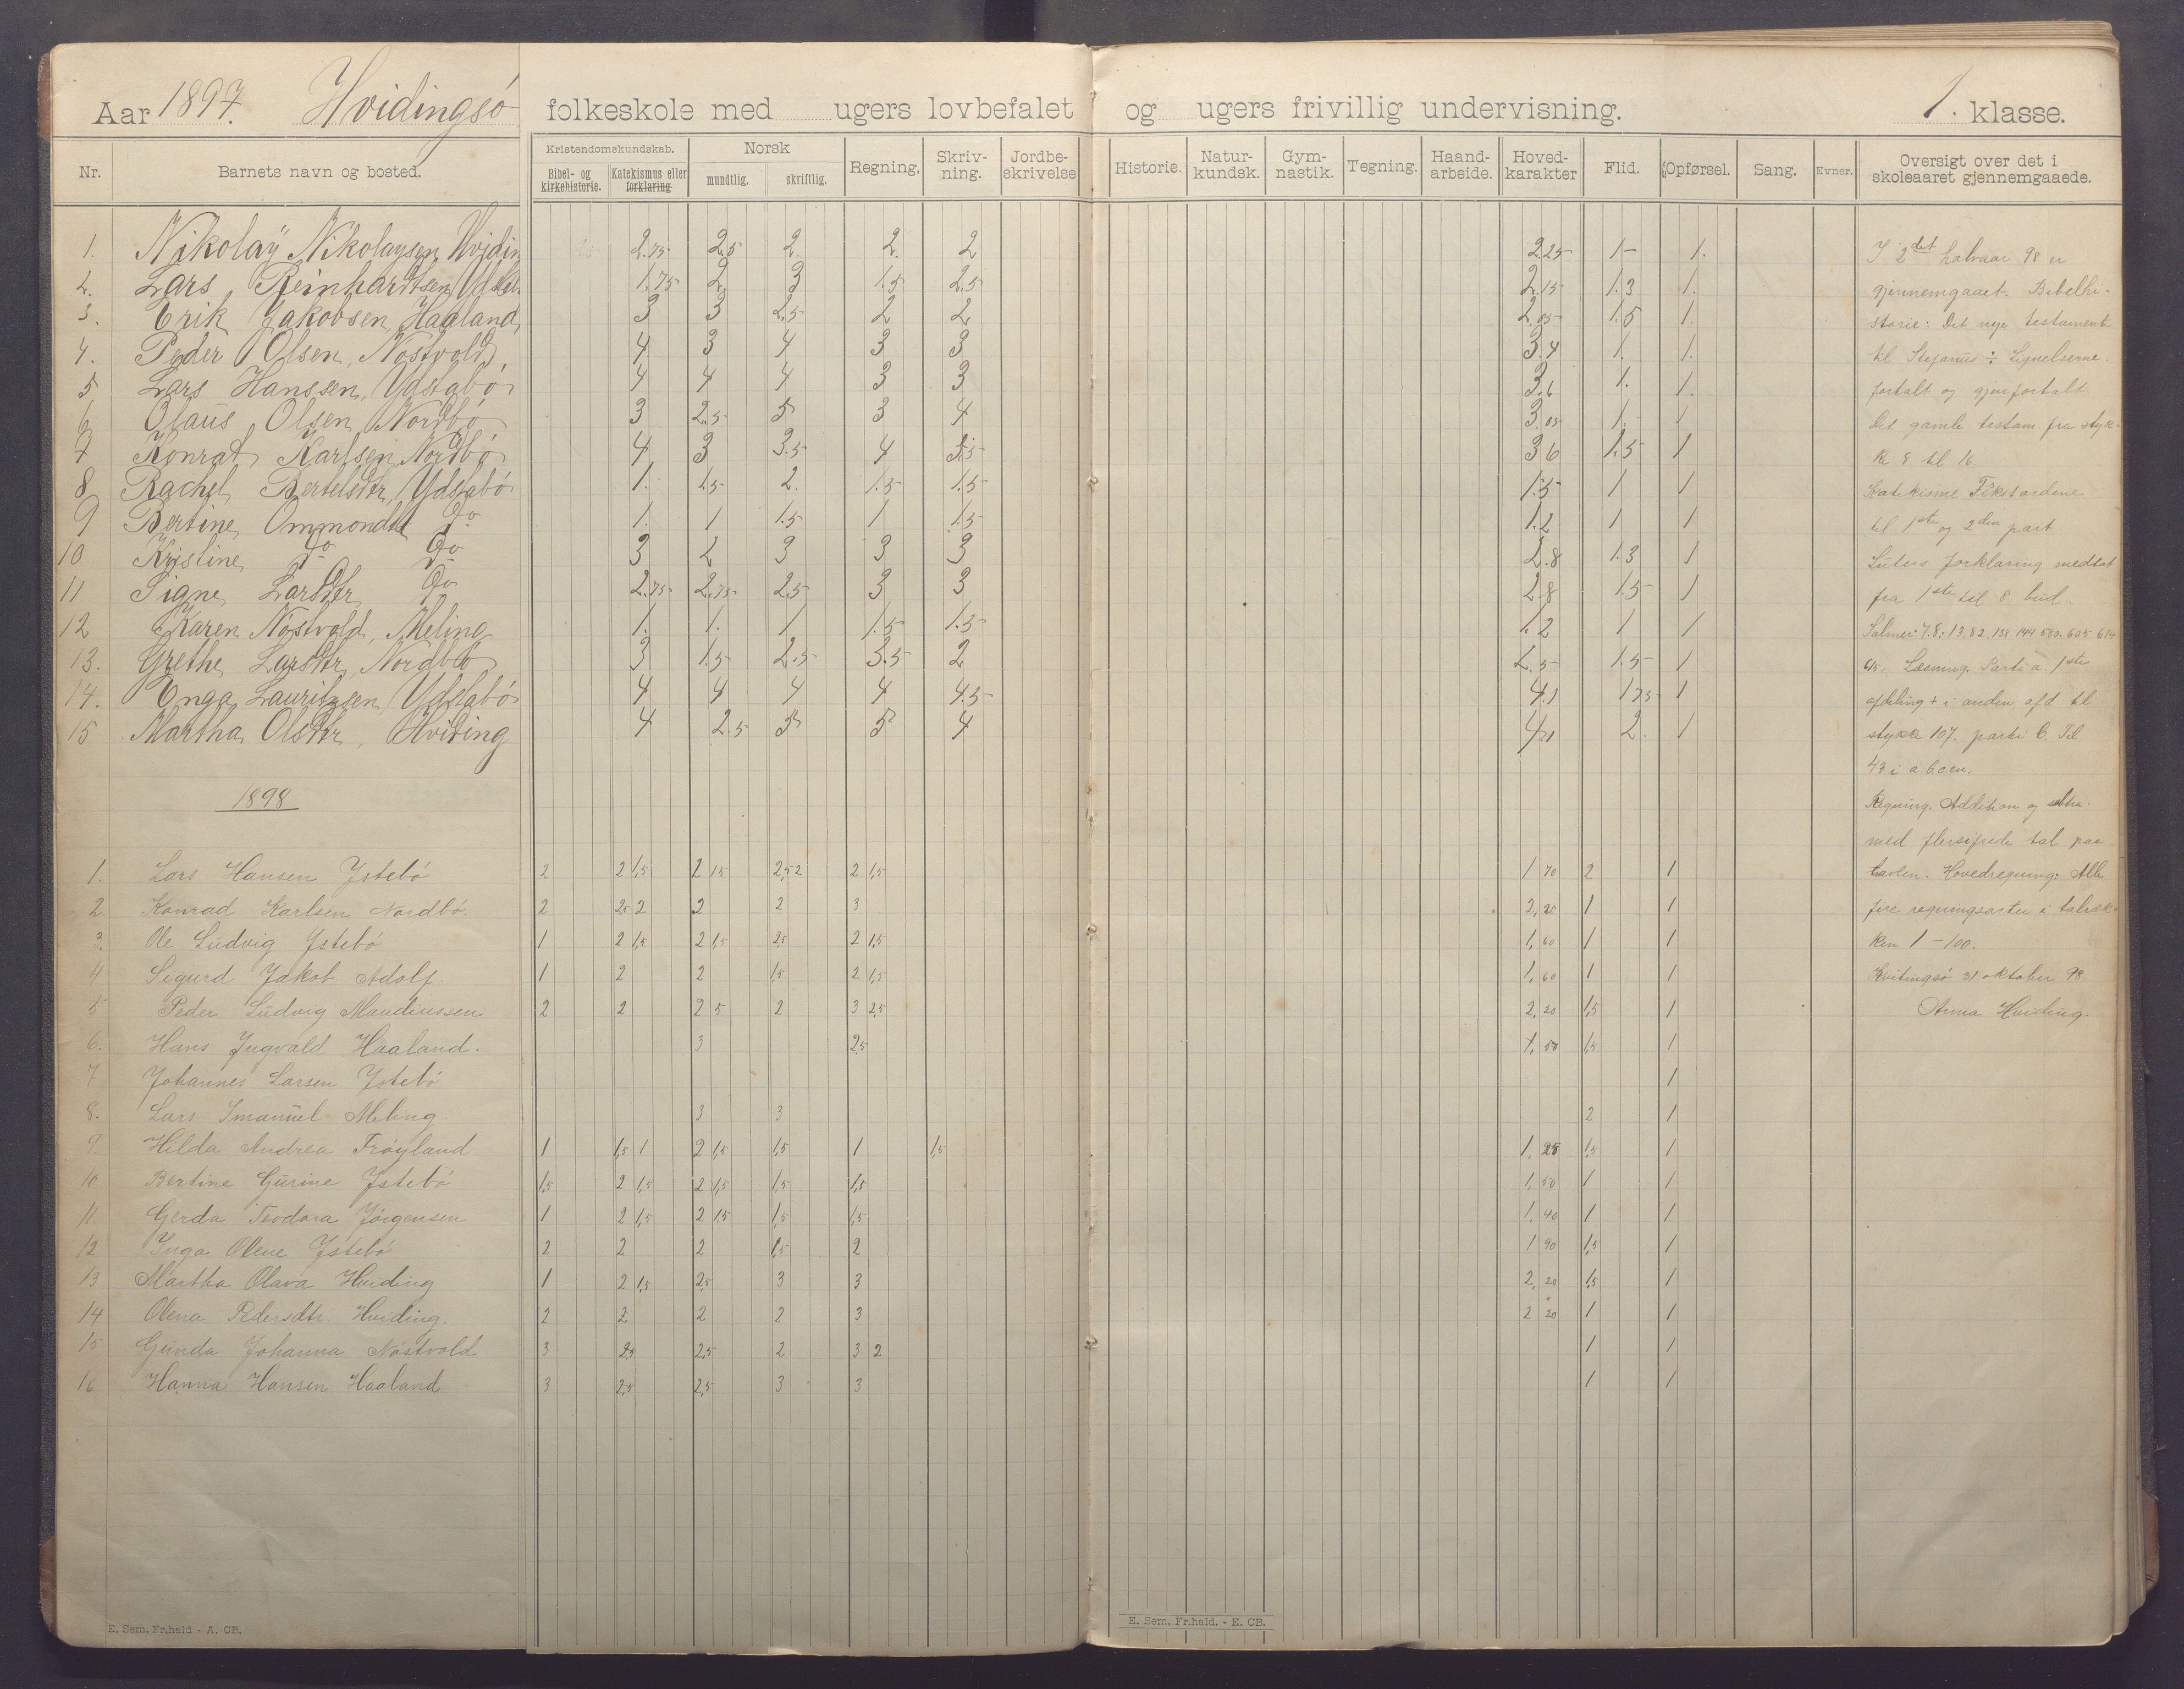 Aar 1897. Hvidingsö folkeskole med ugers lovbefalet og ugers frivillig undervisning. 1. klasse.
Nr. Barnets navn og bosted. Kristendomskundskab. Bibel- og kirkehistorie. Katekismus eller forklaring Norsk mundtlig. skriftlig. Regning. Skriv-ning. Jordbe-skrivelse Historie. Natur-kundsk. Gym-nastik. Tegning. Haand-arbeide. Hoved-karakter Flid. Opførsel. Sang. Evner. Oversigt over det i skoleaaret gjennemgaaede.
1. Nikolaÿ Nikolaysen Hvidin 2.75 2.5 2. 2. 2 2.25 1- 1.
2. Lars Reinhardtsen 1.75 2. 3 1.5 2.5 2.15 1.3 1.
3. Erik Jakobsen, Haaland, 3 3 2.5 2 2 2.05 1.5 1.
4. Peder Olsen, Nöstvold, 4 3 4 3 3 3.4 1. 1.
5 Lars Hanssen, Ydstabö 4 4 4 3 3 3.6 1. 1.
6 Olaüs Olsen, Nordbö 3 2.5 5 3 4 3.05 1. 1
7 Konrat Karlsen Nordbö 4 3 3.5 4 3.5 36 1.5 1
8 Rachel Bertelsdtr, Ydstabö 1. 1.5 2. 1.5 1.5 1.5 1 1
9 Bertine, Ommondtr do 1. 1 1.5 1 1.5 1.2 1 1
10 Kristine, do do 3 2 3 3 3 2.8 1.3 1
11 Signe, Larsdtr, do 2.75 2.75 2.5 3 3 2.8 1.5 1
12 Karen Nöstvold, Meling 1. 1. 1 1.5 1.5 1.2 1 1
13. Grethe, Larsdtr, Nordbö 3 1.5 2.5 3.5 2 2.5 1.5 1
14. Enga Lauritzsen, Ydstabö 4 4 4 4 4.5 4.1 1 75 1
15 Martha, Olsdtr, Hviding 4 2.5 5 5 4 4.1 2. 1
1898
1. Lars Hansen Ystebö 2 2 1,5 2 15 2,5 2 2 1,5 1 70 2 1
2. Konrad Karlsen Nordbö. 2 2,5 2 2 2 3 2,20 1 1
3. Ole Lüdvig Ystebö 1 2 1,5 2 1,5 2,5 2 1,5 1,60 1 1
4 Sigurd Jakob Adolf. 1 2 2 1,5 2 1,5 1,60 1 1
5 Peder Lüdvig Maudiussen 2 2 2 5 2 3 2,5 2,20 1,5 1
6. Hans Ingvald Haaland. 3 2,5 1,50 1,5 1
7 Johannes Larsen Ystebö 1
8. Lars Imanüel Meling 3 3 2 1
9. Hilda Andrea Fröyland 1 1,5 1 2 1,5 1,5 1 1,5 1,25 1,5 1
10 Bertine Gürine Ystebö 1,5 2 1,5 2 1,5 1,5 1,5 1,50 1 1
11. Gerda Teodora Jörgensen 1 2 1,5 2 1,5 1,5 1,5 1,40 1 1
12 Inga Olene Ystebö 2 2 2 1,5 2 1 90 1,5 1
13 Martha Olava Hviding 1 2 1,5 2,5 3 3 2,20 1,5 1
14 Olena Pedersdtr Hviding. 2 2 2 2 3 2 20 1 1
15 Günda Johanna Nöstvold 3 2,5 2,5 2 3 2 1 1
16 Hanna Hansen Haaland 3 2,5 2,5 3 3 1 1
I 2det halvaar 98 er
gjennemgaaet. Bibelhi-
storie: Det nye testament
til Stefanüs ÷ Lignelserne
fortalt og gjenfortalt.
Det gamle testam fra styk-
ke 8 til 16.
Katekisme Tekstordene
til 1ste og 2den part
Lüters forklaring medtat
fra 1ste til 8 bud.
Salmer: 7.8: 13.82. 138. 144 580. 605 614
615. Læsning. Parti a 1ste
afdeling + i anden afd til
stykke 107. parti C. Til
43 i a.b.c.en.
Regning. Addition og
med flersifrede tal paa
tavlen. Hovedregning: Alle
fire regningsarter i talræk-
ken 1-100.
Kvitingsö 31 oktober 98
Anna Hviding.
E. Sem, Fr.hald - A. CB.
E. Sem, Fr.hald. - E. CB.